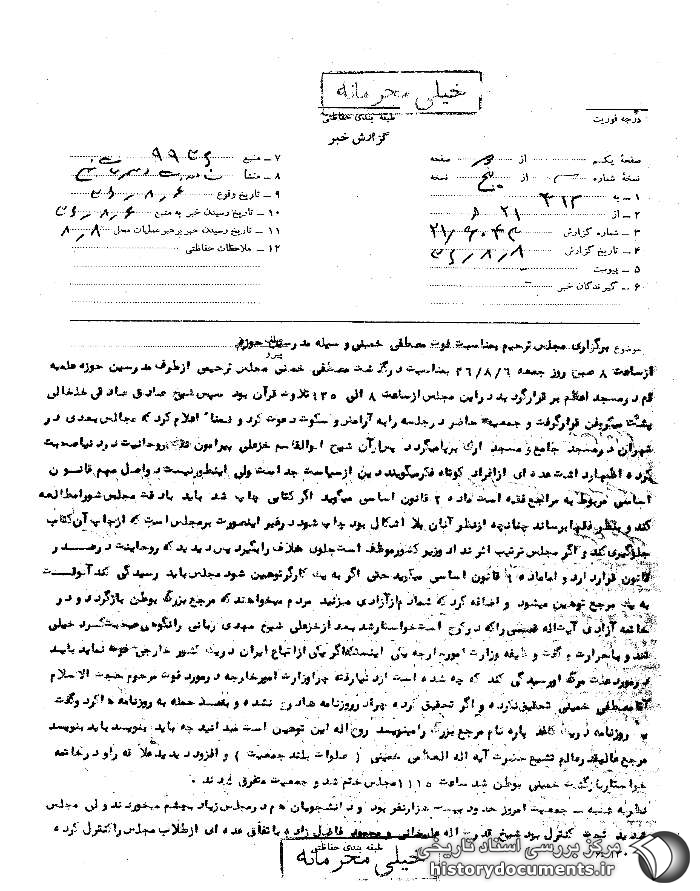 خیلی محرمانه
طبقه بندی حفاظتی
درجه فوریت
گزارش خبر
صفحه یکم از صفحه
نسخه شماره از پنج نسخه
۱ ـ به ۳۱۲
۲ ـ از ۲۱ ه
۳ ـ شماره گزارش
۴ ـ تاریخ گزارش ۳۶٫۸٫۸
۵ ـ پیوست
۶ ـ گیرندگان خبر
۷ ـ منبع
۸ ـ منشأ
۹ ـ تاریخ وقوع ۳۶٫۸٫۶
۱۰ ـ تاریخ رسیدن خبر به منبع ۳۶٫۸٫۶
۱۱ ـ تاریخ رسیدن خبر برهبر عملیات محل ۸٫۸
۱۲ ـ ملاحظات حفاظتی
موضوع برگزاری مجلس ترحیم بمناسبت فوت مصطفی خمینی وسیله مدرسین حوزه
ازساعت ۸ صبح روز جمعه ۳۶/۸/۶ بمناسبت درگذشت مصطفی خمینی مجلس ترحیمی ازطرف مدرسین حوزه علمیه
قم درمسجد اعظم برقرارگردید دراین مجلس ازساعت ۸ الی تلاوت قرآن بود سپس شیخ صادق صادقی خلخالی
پشت میکرفن قرارگرفت و جمعیت حاضر درجلسه رابه آرامش و سکوت دعوت کرد و ضمناً اعلام کرد که مجالس بعدی در
تهران درمسجد جامع و مسجد ارک برپامیگردد پس ازآن شیخ ابوالقاسم خزعلی پیرامون نقش روحانیت دردنیاصحبت
کرده اظهارداشت عده ای ازافراد کوتاه فکرمیگویند دین ازسیاست جداست ولی اینطورنیست دراصل مهم قانون
اساسی مربوط به مراجع فقیه است ماده ۲ قانون اساسی میگوید اگر کتابی چاپ شد باید بادقت مجلس شورامطالعه
کند و بنظر فقها برساند چنانچه ازنظر آنان بلا اشکال بود چاپ شود درغیر اینصورت برمجلس است که ازچاپ آن کتاب
جلوگیری کند و اگر مجلس ترتیب اثر نداد وزیر کشورموظف است جلوی خلاف رابگیرد پس دیدید که روحانیت درصدر
قانون قراردارد و اماماده قانون اساسی میگوید حتی اگر به یک کارگرتوهین شود مجلس باید رسیدگی کند آنوقت
به یک مرجع توهین میشود و اضافه کرد که شما دم ازآزادی میزنید مردم میخواهند که مرجع بزرگ بوطن بازگردد و در
خاتمه آزادی آیت‌اله قمی راکه درکرج است خواستارشد بعد ازخزعلی شیخ مهدی ربانی رانکوهی صحبت کرد خیلی
تند و باحرارت و گفت وظیفه وزارت امورخارجه یکی اینستکه اگر یکی ازاتباع ایران دریک کشور خارجی فوت نماید باید
درمورد علت مرگ اورسیدگی کند که چه شده است ازد نیارفته چرا وزارت امورخارجه درمورد فوت مرحوم حجت الاسلام
آقامصطفی خمینی تحقیق نکرده و اگر تحقیق کرده چرا درروزنامه ها درج نشده و بقصد حمله به روزنامه ها کرد وگفت
روزنامه دریک کاغذ پاره نام مرجع بزرگ رامینویسد روح اله این توهین است مید انید چه باید بنویسد باید بنویسد
مرجع عالیقدر عالم تشیع حضرت آیه اله العظمی خمینی ( صلوات بلند جمعیت ) و افزود دیدید علاقه را و درخاتمه
خواستاربازگشت خمینی بوطن شد ساعت ۱۱۱۵ مجلس ختم شد و جمعیت متفرق شدند
نظریه شنبه ـ جمعیت امروز حدود بیست هزارنفر بود و دانشجویان هم درمجلس زیاد بچشم میخوردند ولی مجلس
شدید تحت کنترل بود شیخ قدرت اله علیخانی و محمود فاضل زاده باتفاق عده ای ازطلاب مجلس راکنترل کرده
طبقه بندی حفاظتی
خیلی محرمانه
مرکز بررسی اسناد تاریخی
historydocuments.ir